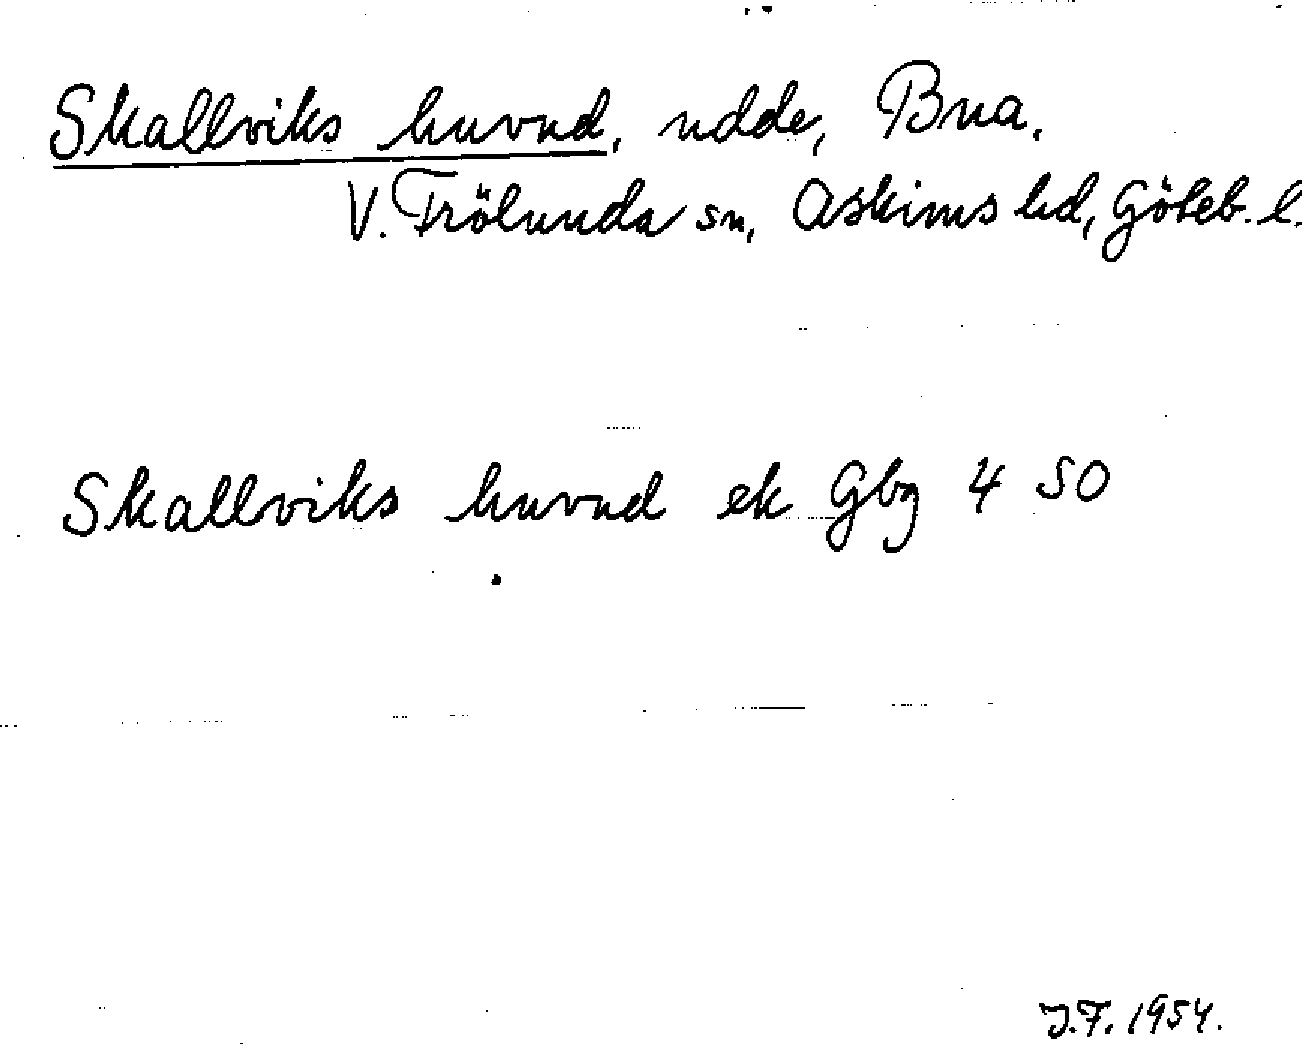 Skallviks huvud, udde, Bua.
V. Frölunda sn, Askims hd, Göteb. l.
Skallviks huvud ek Gbg 4 SO
J.F. 1954.